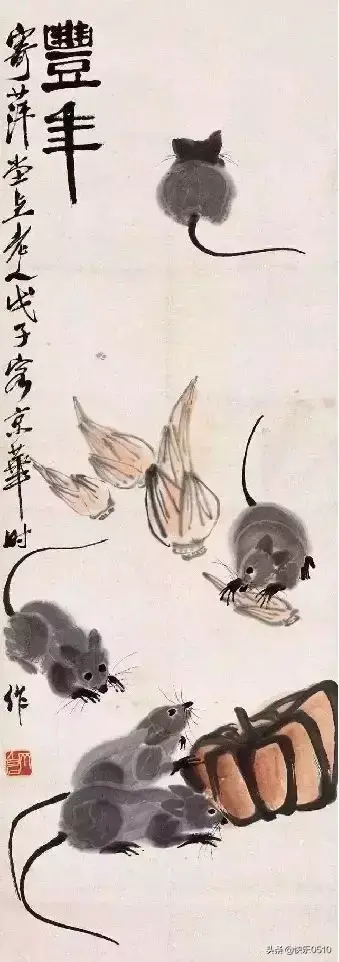 豐年
寄萍堂上老人戊子客京華时
作
头条@快乐0510